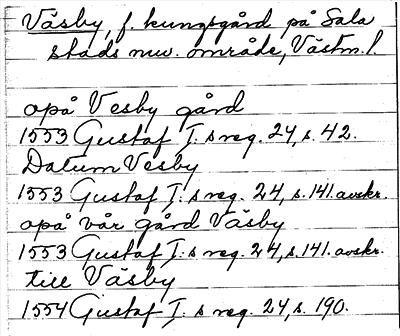 Väsby, f. kungsgård på Sala
stads nuv. område, Västm. l.
opå Vesby gård
1553 Gustaf I:s reg. 24, s. 42.
Datum Vesby
1553 Gustaf I:s reg. 24, s. 141. avskr.
opå vår gård Väsby
1553 Gustaf I:s reg. 24, s. 141. avskr.
till Väsby
1554 Gustaf I:s reg. 24, s. 190.